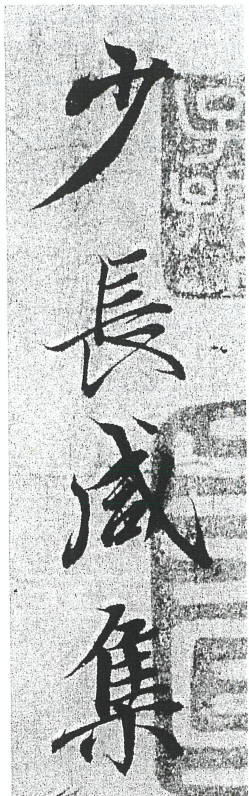 少長咸集